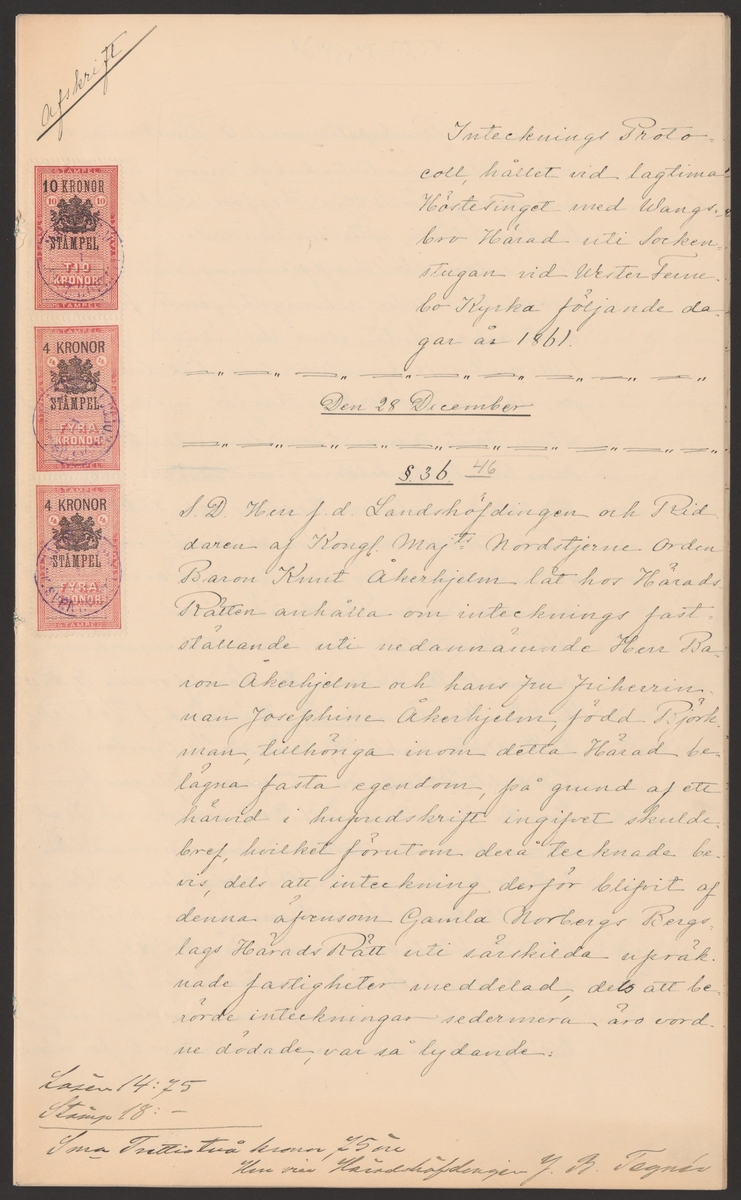 Afskrift
Intecknings Proto-
coll, hållet vid lagtima
HösteTinget med Wangs-
bro Härad uti Socken-
stugan vid Wester Ferne-
bo Kyrka följande da-
gar år 1861.
Den 28 December
§. 36. 46
S. D. Herr f. d. Landshöfdingen och Rid
daren af Kongl. Majts Nordstjerne Orden
Baron Knut Åkerhjelm lät hos Härads
Rätten anhålla om intecknings fast-
ställande uti nedannämnde Herr Ba-
ron Åkerhjelm och hans fru friherrin-
nan Josephine Åkerhjelm, född Björk-
man, tillhöriga inom detta Härad be-
lägna fasta egendom, på grund af ett
härvid i hufvudskrift ingifvet skulde-
bref, hvilket förutom derå tecknade be-
vis, dels att inteckning derför blifvit af
denna äfvensom Gamla Norbergs Bergs-
lags HäradsRätt uti särskilda uppräk-
nade fastigheter meddelad, dels att be-
rörde inteckningar sedermera äro vord-
ne dödade, var så lydande:
Lösen 14:75
Stämp 18:-
Sma Trettiotvå kronor, 75 öre
Häradshöfdingen J. B. Tegnér
STÄMPEL
10 KRONOR
10 10
STÄMPEL
TIO
KRONOR
STÄMPEL
4 KRONOR
STÄMPEL
FYRA
KRONOR
STÄMPEL
4 KRONOR
STÄMPEL
FYRA
KRONOR
STÄMPEL